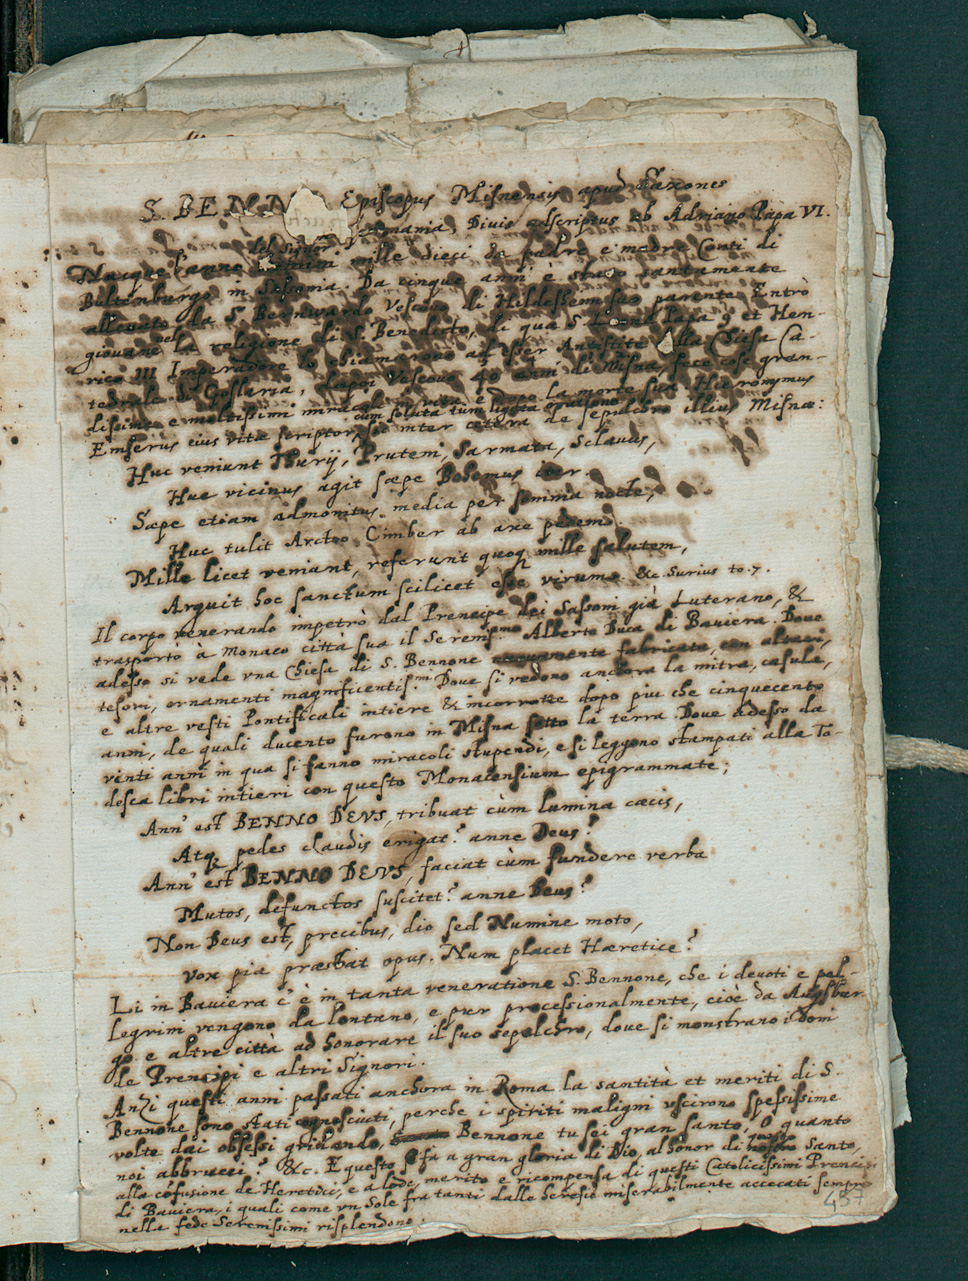 S. BENN Episcopus Misnensis apud Saxones
mania, Divis adscriptus ab Adriano Papa VI.
del Sigre
Nacque l'anno mille dieci da padre e madre Conti di
Bultenburgo in Sassonia. Da cinque anni e stato santamente
allevato da S. Bernwardo Vescovo di Hildesheim suo parente. Entrò
giovane nella religione di S. Benedetto, di qua S. Papa 9 et Hen-
rico III Imperadore lo chiamarono ad esser Antistite alla Chiesa Ca-
tedrale di Goslaria, dapoi Vescovo 40 anni di Misna, fece cose gran-
dissime e moltissimi miracoli in vita e dopo la morte sua Hieronymus
cum soluta tum ligata
Emserus eius vitæ scriptor, inter cætera de sepulchro illius Misnæ:
Huc veniunt Thurij, Pruteni, Sarmata, Sclavus,
Huc vicinus agit sæpe Bohemus iter.
Sæpe etiam admonitus media per somnia nocte,
Huc tulit Arctoo Cimber ab axe pedem.
Mille licet veniant, referunt quoq mille salutem,
Arguit hoc sanctum scilicet esse virum. &c. Surius to. 7.
Il corpo venerando impetrò dal Prencipe dei Sassoni già Luterano, &
trasportò à Monaco città sua il Serenis.mo Alberto Duca di Baviera. Dove
adesso si vede vna Chiesa di S. Bennone nuovamente fabricata, con altari,
tesori, ornamenti magnificentis.mi Dove si vedono anchora la mitra, casula,
e altre vesti Pontificali intiere & incorrotte dopo piu che cinquecento
anni, de quali ducento furono in Misna sotto la terra. Dove adesso da
venti anni in qua si fanno miracoli stupendi, e si leggono stampati alla To-
desca libri intieri con questo Monacensium epigrammate;
Ann' est BENNO DEVS, tribuat cùm lumina cæcis,
Atq pedes claudis erigat? anne Deus?
Ann' est BENNO DEVS, faciat cùm fundere verba
Mutos, defunctos suscitet? anne Deus?
Non Deus est, precibus, dio sed Numine moto,
Vox pia præstat opus. Num placet Hæretice?
Li in Baviera c'è in tanta veneratione S. Bennone, che i devoti e pel-
legrini vengono da lontano, e pur processionalmente, cioè da Augsbur-
go e altre città ad honorare il suo sepolchro, dove si monstrano i doni
de Prencipi e altri Signori.
Anzi questi anni passati anchora in Roma la santità et meriti di S.
Bennone sono stati cognosciuti, perche i spiriti maligni vscirono spessissime
volte dai obsessi gridando, Bennone tu sei gran santo, O quanto
noi abbrucci? &c. E questo sfa a gran gloria di Dio, al honor di questo nostro Santo,
alla cófusione de Heretici, e a lode, merito e ricompensa di questi Catolicissimi Prencipi
di Baviera, i quali come vn Sole fra tanti dalle heresie miserabilmente accecati sempre
nella fede Serenissimi risplendono.
457